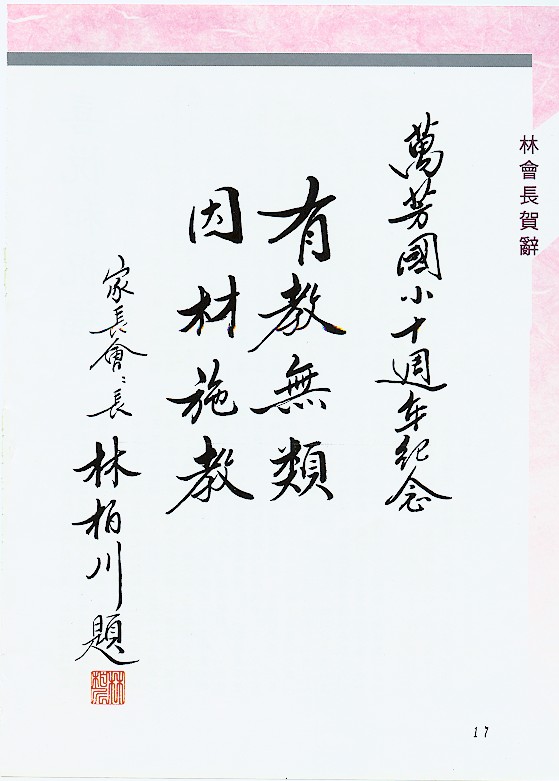 林會長賀辭
萬芳國小十週年紀念
有教無類
因材施教
家長會〻長 林柏川 題
林柏川
17